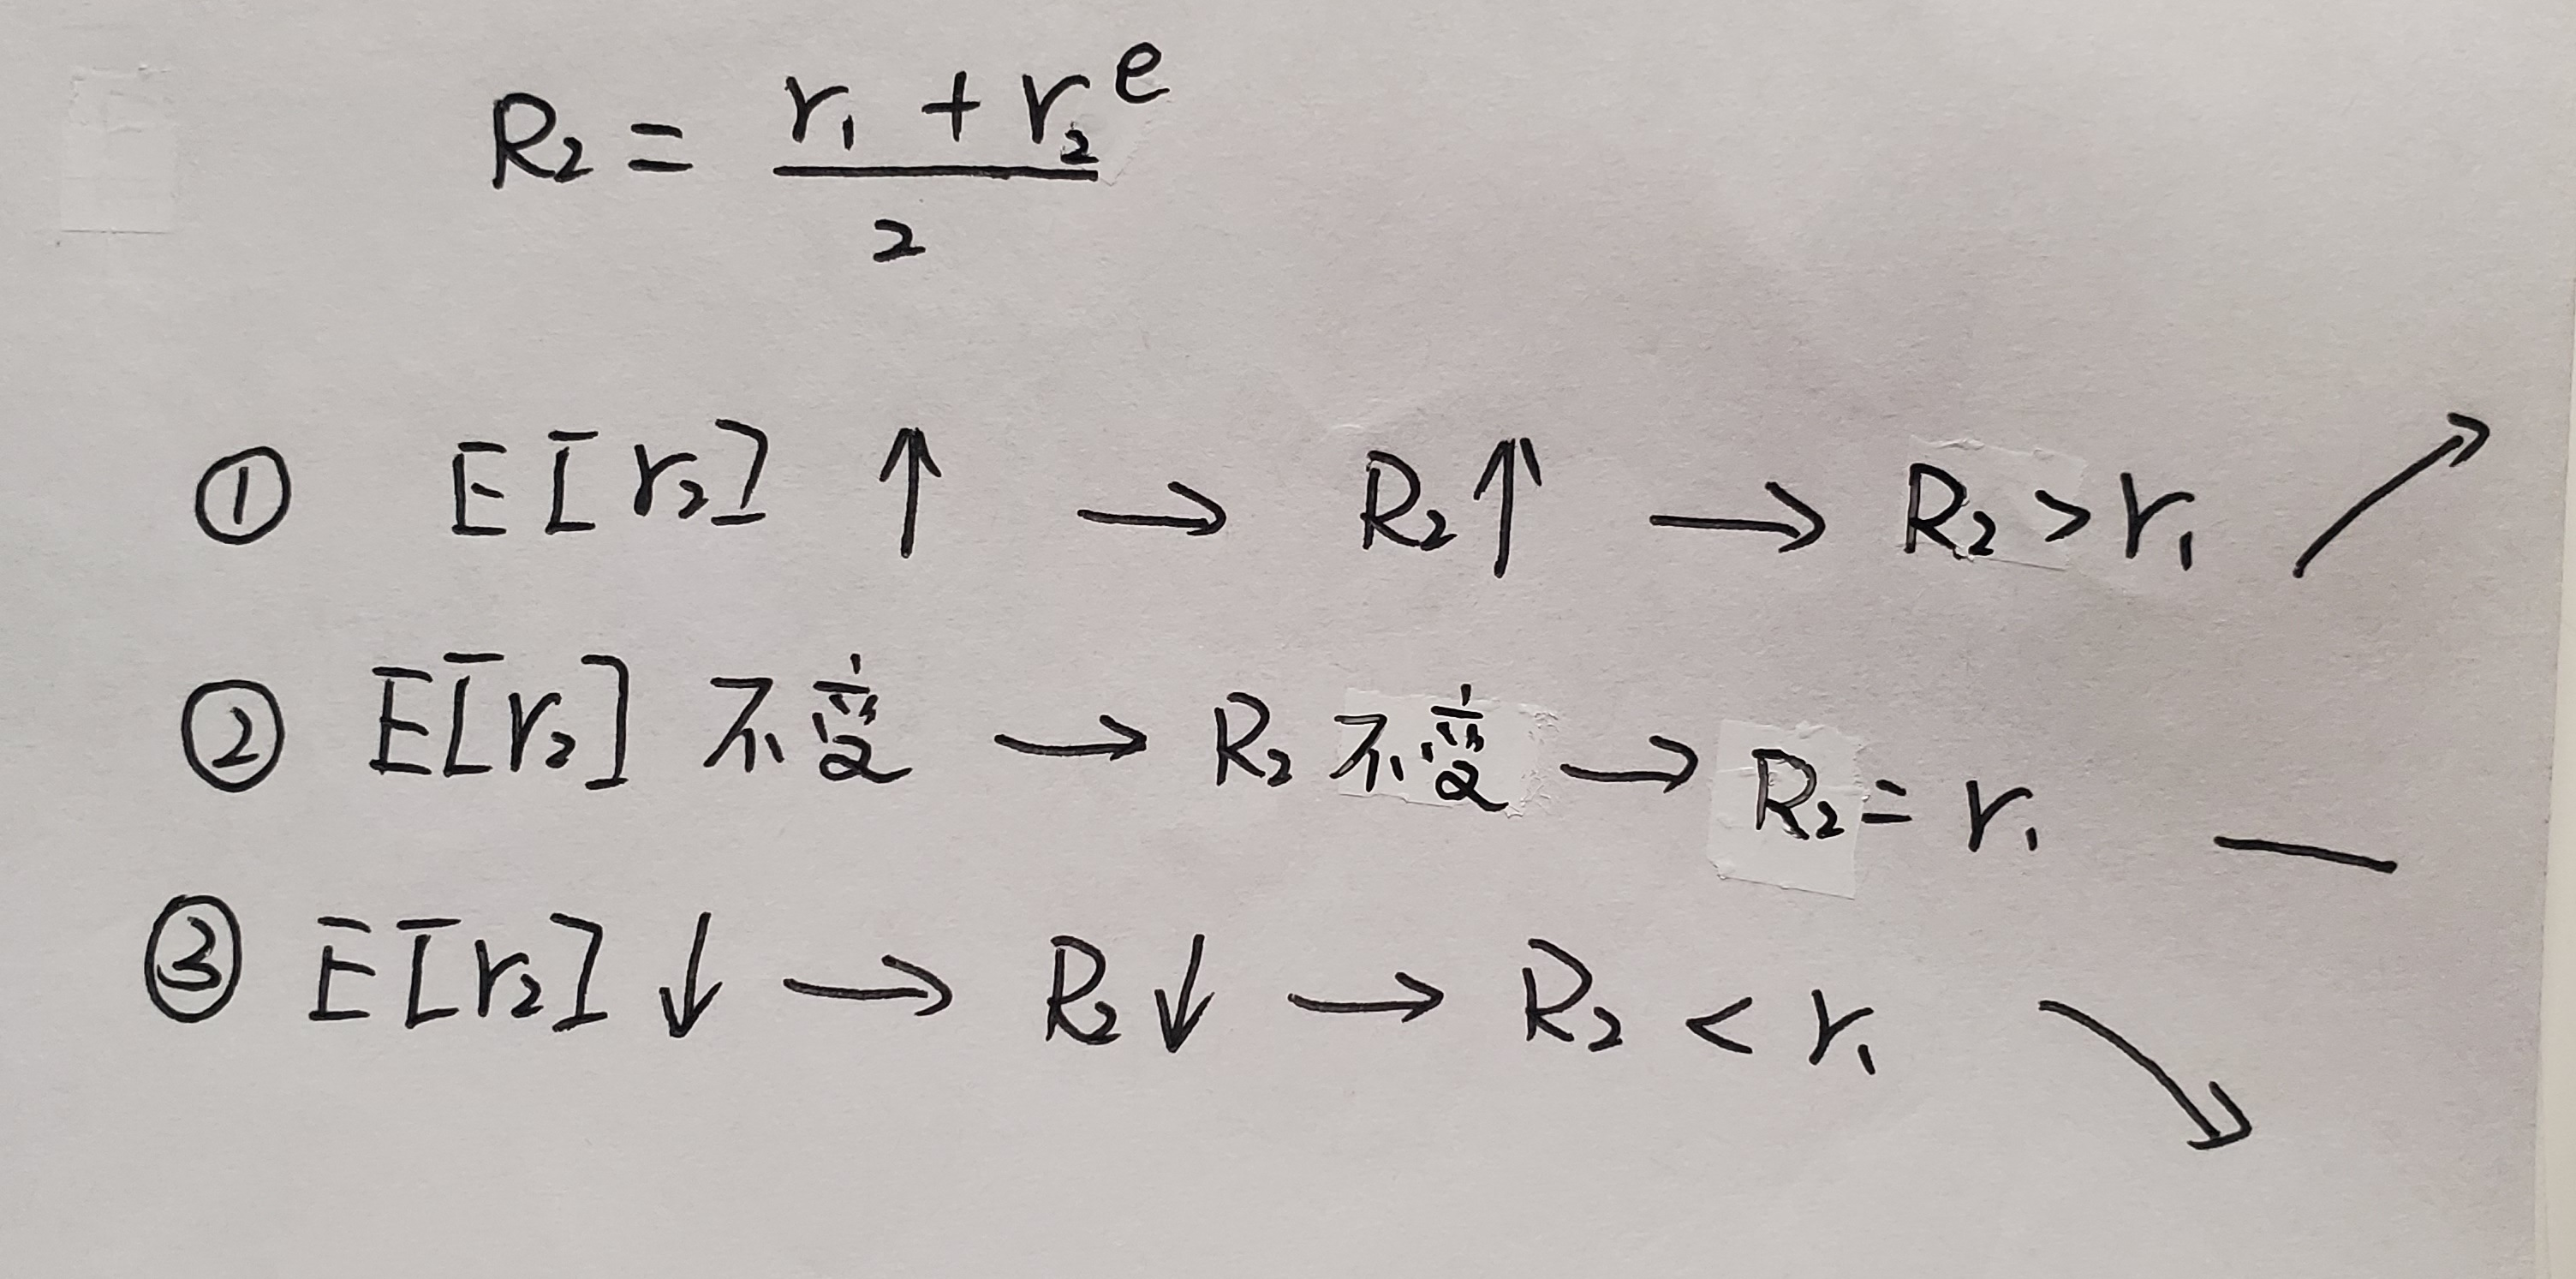 R₂ = (r₁ + r₂ᵉ) / 2
① E[r₂] ↑ → R₂ ↑ → R₂ > r₁ ↗
② E[r₂] 不变 → R₂ 不变 → R₂ = r₁ —
③ E[r₂] ↓ → R₂ ↓ → R₂ < r₁ ↘